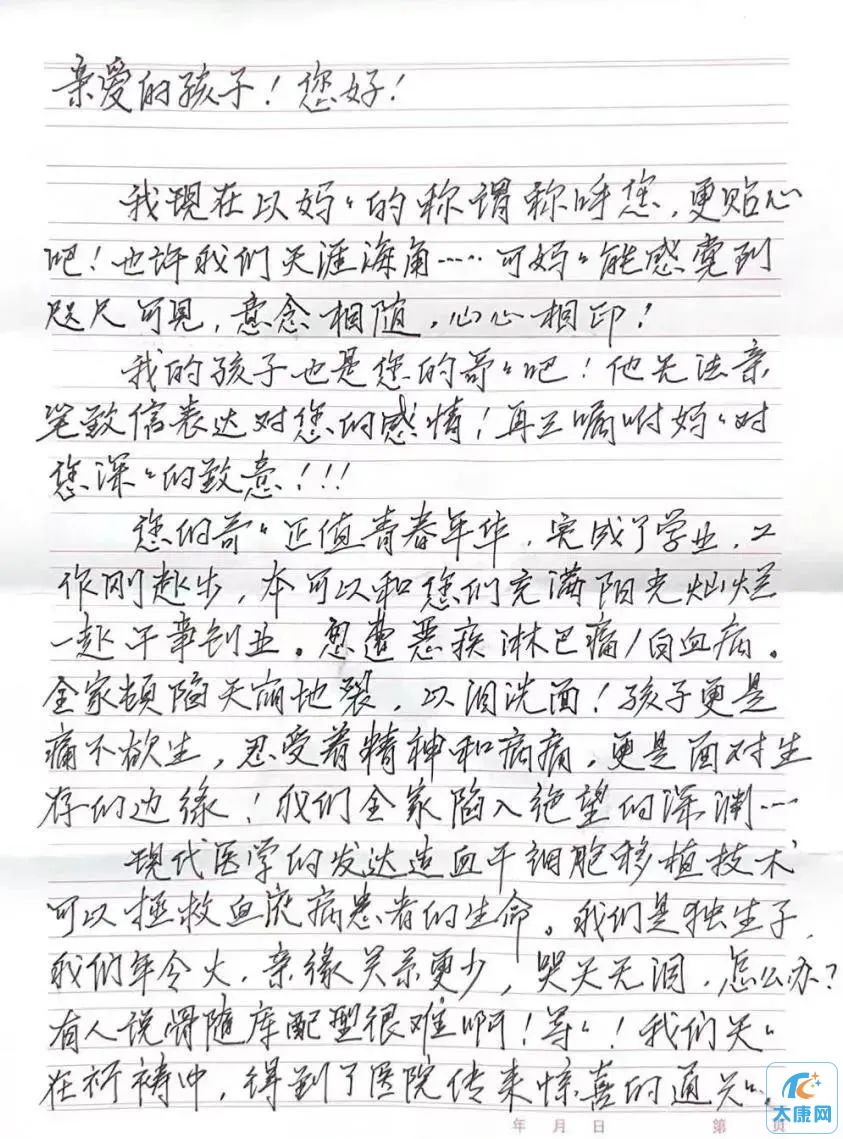 亲爱的孩子！您好！
我现在以妈〃的称谓称呼您，更贴心
吧！也许我们天涯海角……可妈〃能感觉到
咫尺可见，意念相随，心心相印！
我的孩子也是您的哥〃吧！他无法亲
笔致信表达对您的感情！再三嘱咐妈〃对
您深〃的致意！！！
您的哥〃正值青春年华，完成了学业，工
作刚起步，本可以和您们充满阳光灿烂
一起干事创业。忽遭恶疾淋巴瘤/白血病。
全家顿陷天崩地裂，以泪洗面！孩子更是
痛不欲生，忍受着精神和病痛，更是面对生
存的边缘！我们全家陷入绝望的深渊…
现代医学的发达造血干细胞移植技术
可以拯救血液病患者的生命。我们是独生子，
我们年令大，亲缘关系更少，哭天无泪，怎么办？
有人说骨随库配型很难啊！等〃！我们天〃
在祈祷中，得到了医院传来惊喜的通知〃，
年 月 日 第 页
太康网